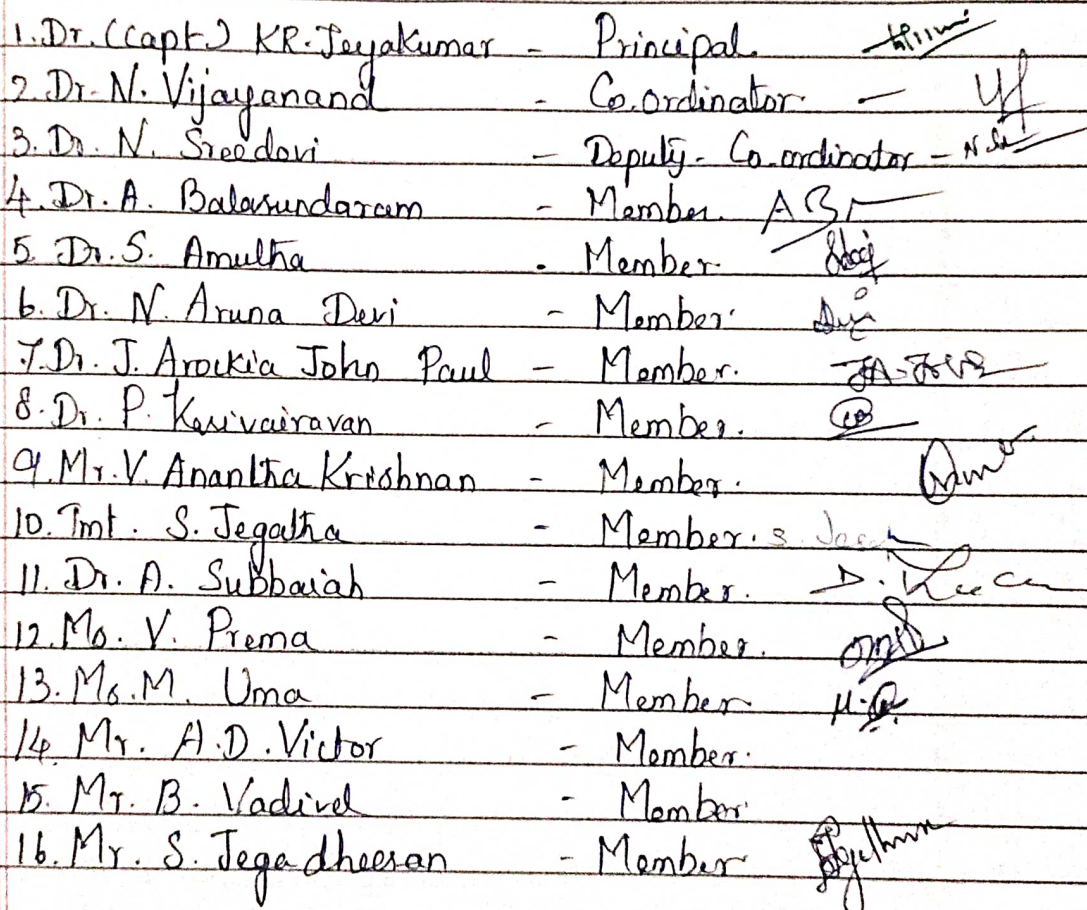 1. Dr. (Capt.) KR. Jeyakumar - Principal.
2. Dr. N. Vijayanand - Co.ordinator -
3. Dr. N. Sreedevi - Deputy - Co.ordinator -
4. Dr. A. Balasundaram - Member.
5. Dr. S. Amutha - Member
6. Dr. N. Aruna Devi - Member
7. Dr. J. Arockia John Paul - Member.
8. Dr. P. Kasivairavan - Member.
9. Mr. V. Anantha Krishnan - Member.
10. Tmt. S. Jegatha - Member.
11. Dr. A. Subbaiah - Member.
12. Ms. V. Prema - Member.
13. Ms. M. Uma - Member
14. Mr. A.D. Victor - Member.
15. Mr. B. Vadivel - Member
16. Mr. S. Jegadheesan - Member